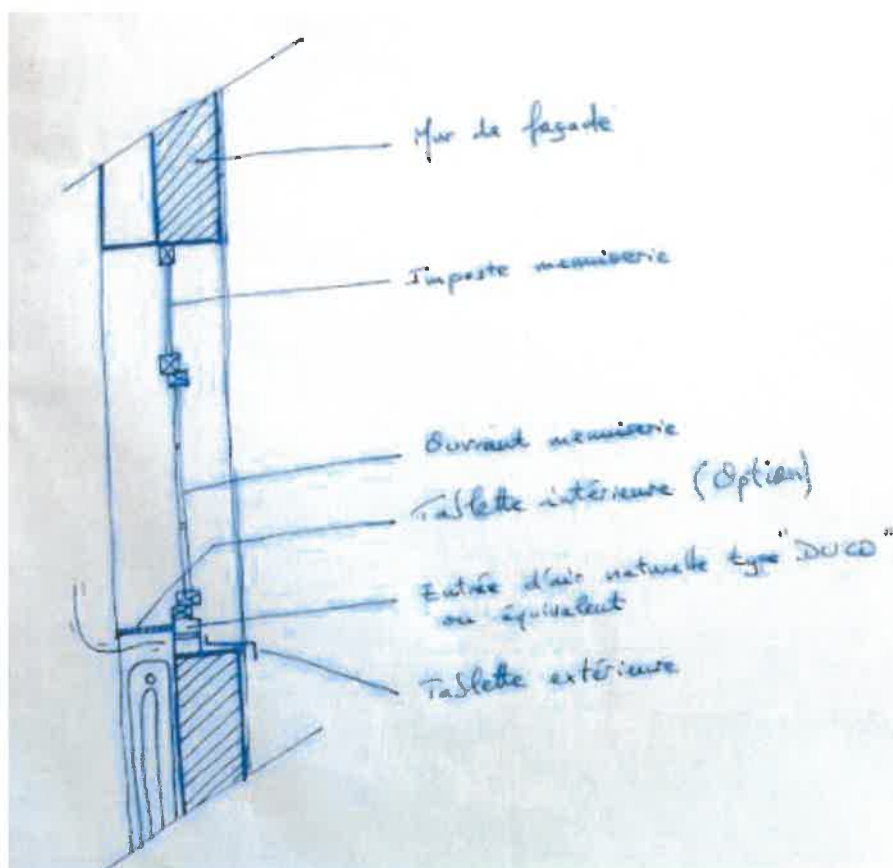 Mur de façade
Imposte menuiserie
Ouvrant menuiserie
Tablette intérieure (Option)
Entrée d'air naturelle type "DUCO"
ou équivalent
Tablette extérieure